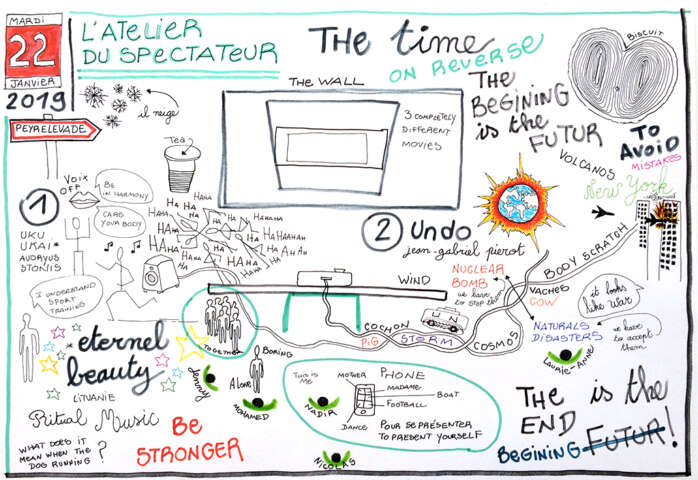 MARDI
22
JANVIER
2019
L'ATELIER
DU SPECTATEUR
THE time
ON REVERSE
BISCUIT
THE WALL
3 COMPLETELY
DIFFERENT
MOVIES
THE
BEGINING
is the
FUTUR
TO
AVOID
MISTAKES
VOLCANOS
New York
il neige
PEYRELEVADE
Tea
1
VOIX
OFF
BE
IN HARMONY
CARE
YOUR BODY
UKU
UKAI*
AUDRYUS
STONYS
I UNDERSTAND
SPORT
TRAINING
HAHA
HA HA
HAHAHA
HAHAHAAH
2 Undo
jean-gabriel périot
NUCLEAR
BOMB
we have
to stop them
WIND
BODY SCRATCH
VACHES
COW
it looks
like war
NATURALS
DISASTERS
we have to
accept
them
LAURIE-ANNE
UN
COCHON
PIG
STORM
COSMOS
TOGETHER
eternel
beauty
LITUANIE
Jenny
Alone
BORING
MOHAMED
THIS IS
ME
NADIR
MOTHER
PHONE
MADAME
BOAT
FOOTBALL
DANCE
POUR SE PRÉSENTER
TO PRESENT YOURSELF
NICOLAS
Ritual Music
WHAT DOES IT
MEAN WHEN THE
DOG RUNNING ?
BE
STRONGER
THE is the
END
BEGINING FUTUR!